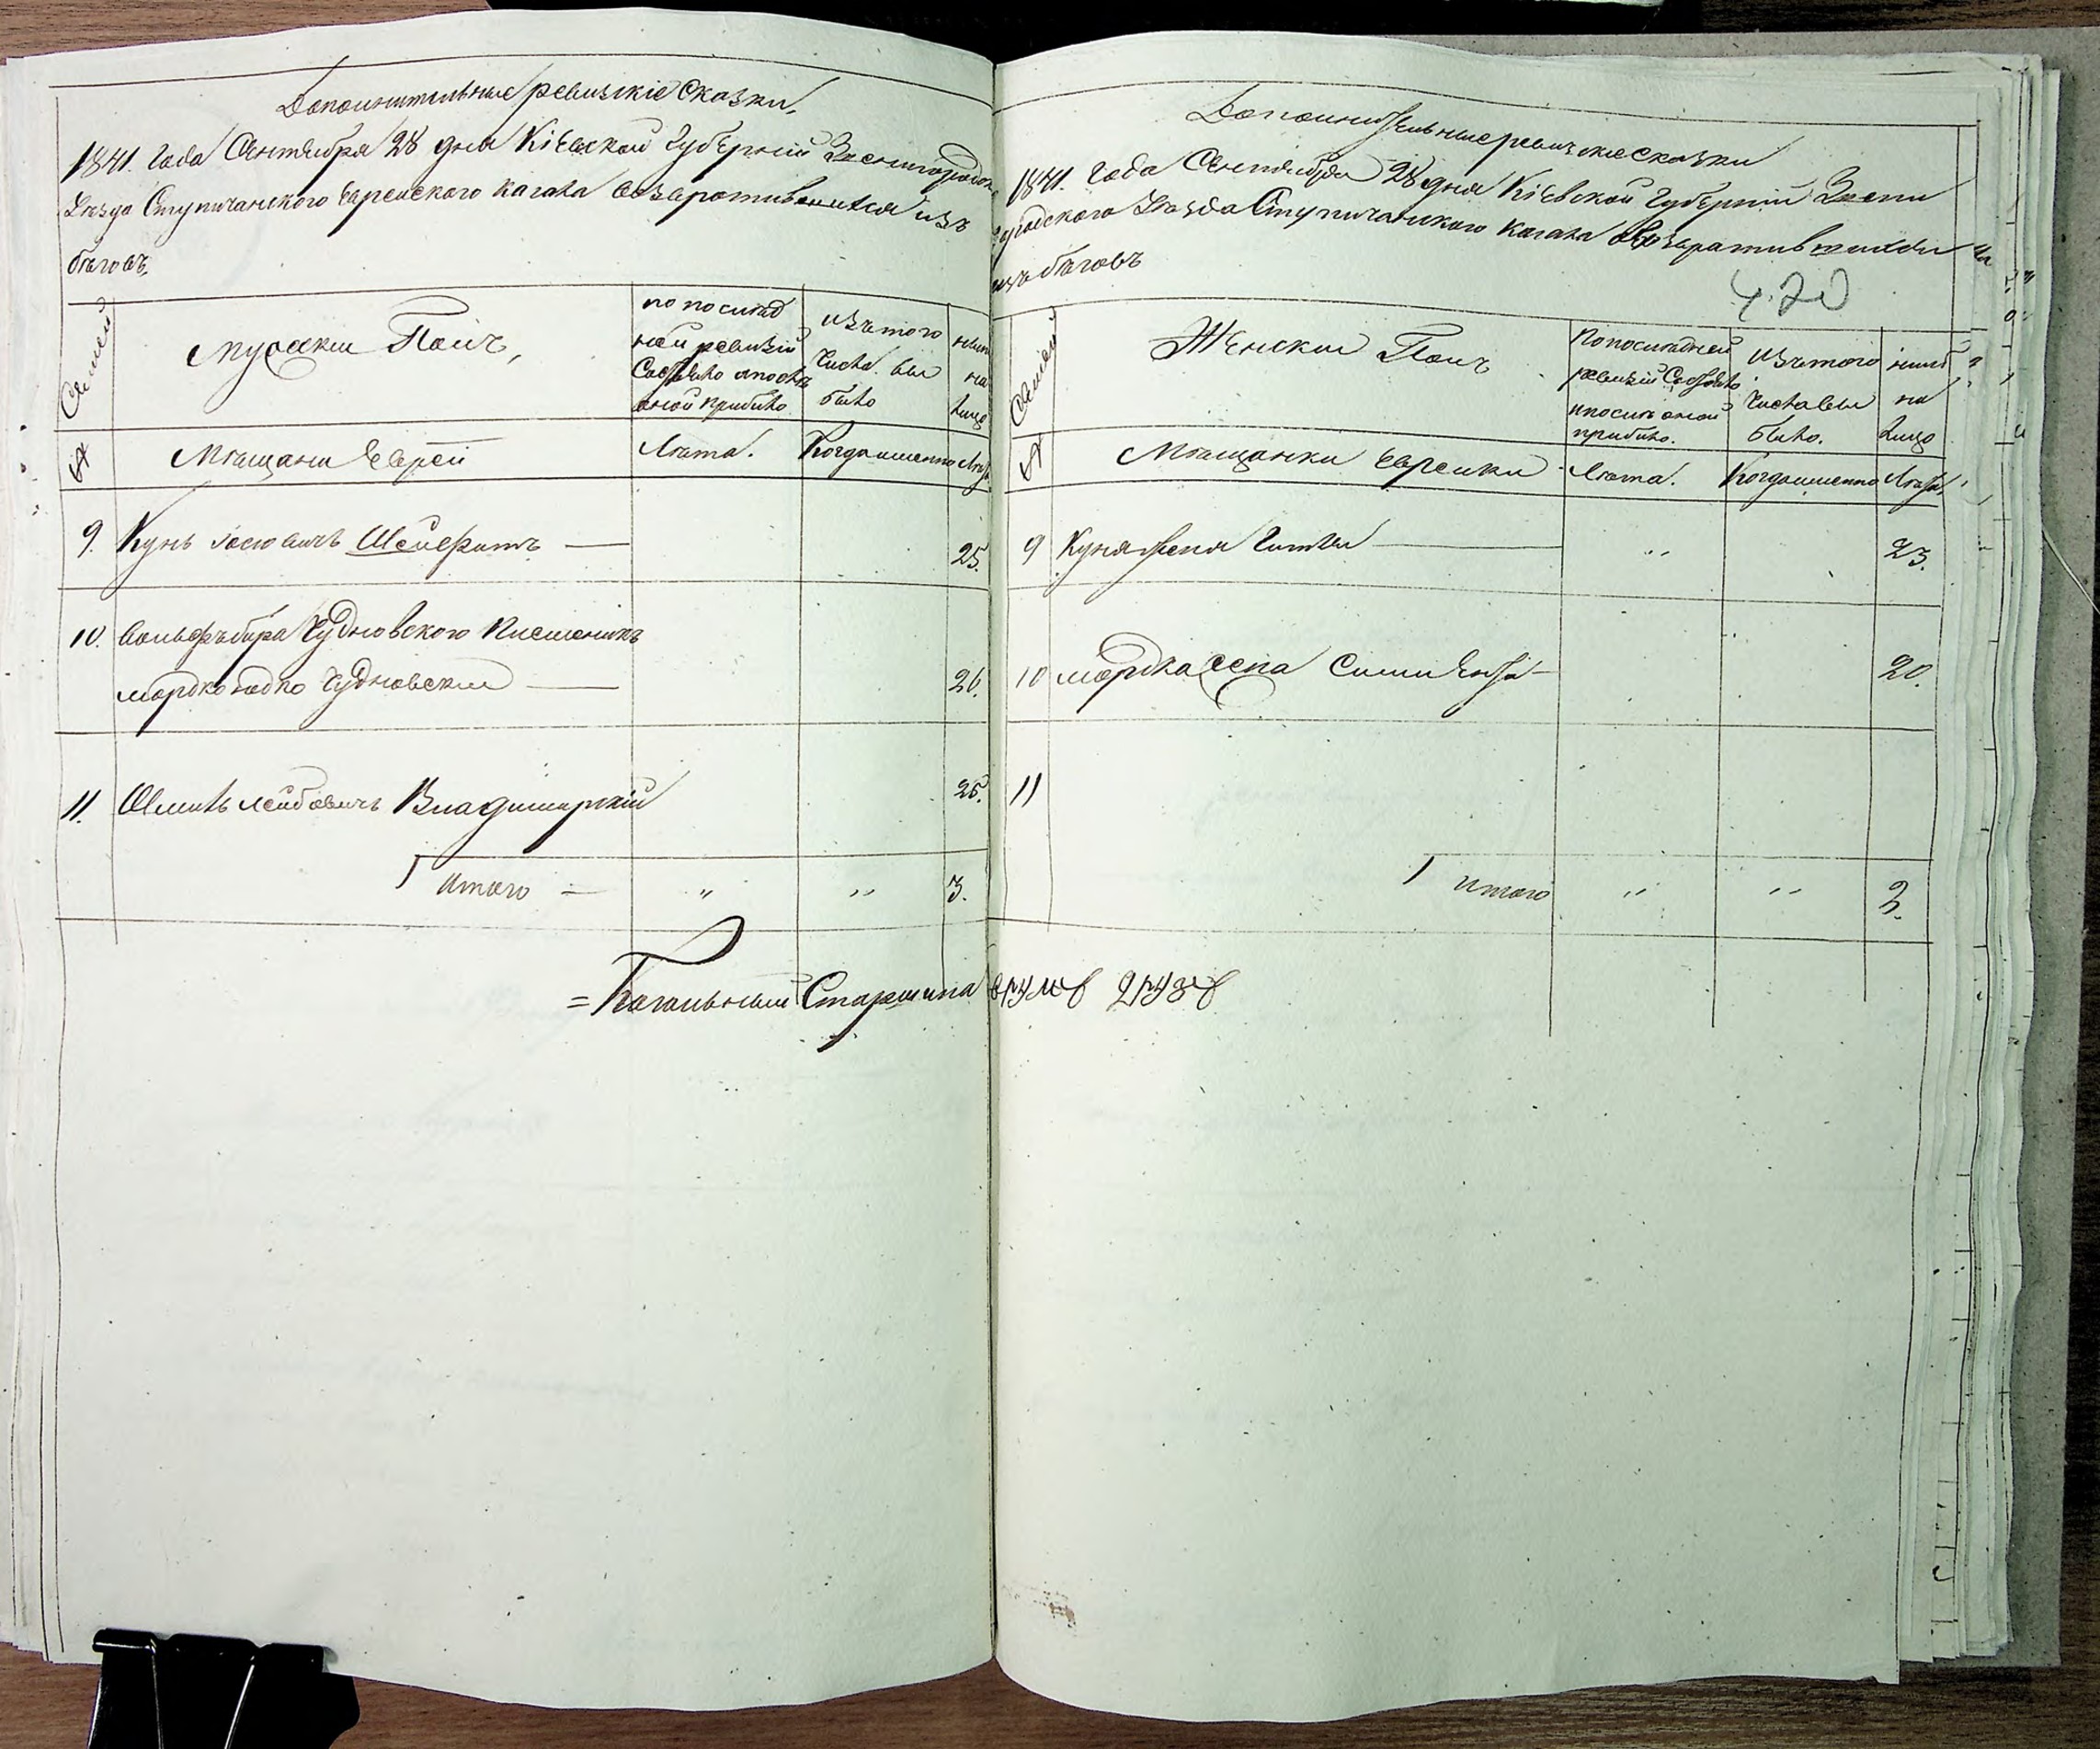 Дополнительные ревизскіе сказки.
1841. года Сентября 28 дня Кіевской Губерніи Звенигородско
Уезда Ступичанского Еврейского кагала возвратившихся изъ
бѣговъ.
Семей
Мужескій Полъ,
по послѣд
ней ревизіи
Состояло и послѣ
оной прибыло
изъ того
числа вы
было
ныне
на
лицо
№
Мѣщани Евреи
Лѣта.
Когда именно
Лѣта
9. Кунь Іосіовичъ Шейфитъ — 25.
10. Вольфъ бера Чудновского Племеникъ
Мордко Чудновскій — 26.
11. Шмиль Лейбовичъ Владимирскій 25.
Итого — " " 3.
= Кагальный Старшина
Дополнительные ревизские сказки
1841. года Сентября 28 дня Кіевской Губерніи Звени
городского Уезда Ступичанского кагала возвратившихся
изъ бѣговъ
420
Семей
Женскій Полъ
По последней
ревизіи Состояло
и после оной
прибыло.
изъ того
числа вы
было.
ныне
на
лицо
№
Мѣщанки Еврейки
Лѣта.
Когда именно
Лѣта
9 Куня жена Гитля — " 23.
10 Мордка жена Сима — 20.
11
Итого " " 2.